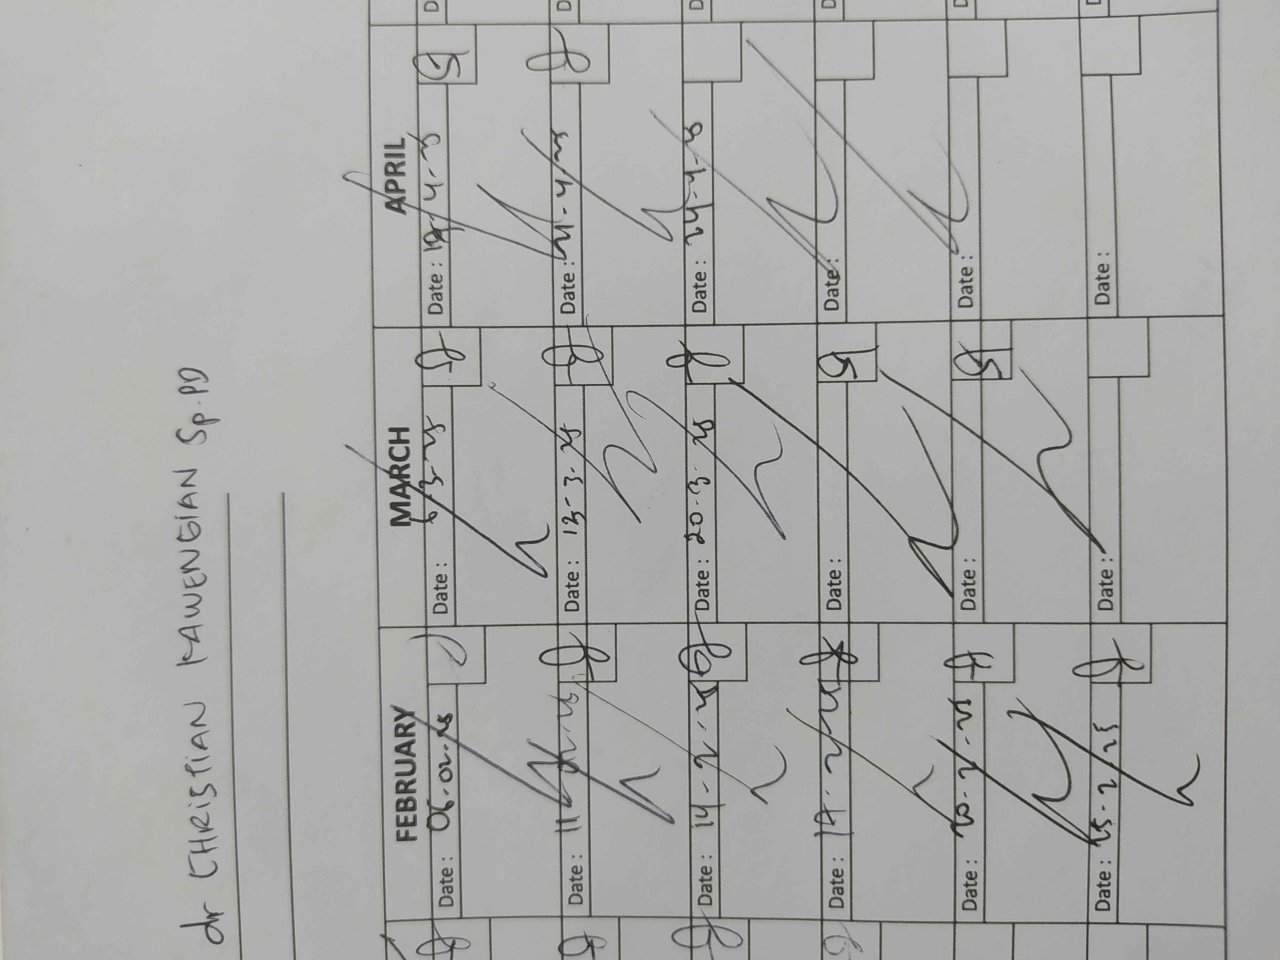 dr CHRISTIAN KAWENGIAN Sp.PD
FEBRUARY MARCH APRIL
Date: 06-02-25 Date: 6-3-25 Date:
Date: 11-02-25 Date: 13-3-25 Date: 21-4-25
Date: 14-2-25 Date: 20-3-25 Date: 24-4-25
Date: Date: Date:
Date: 20-2-25 Date: Date:
Date: 25-2-25 Date: Date: